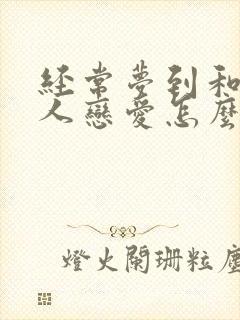 經常夢到和
人戀愛怎麼
燈火闌珊粒塵